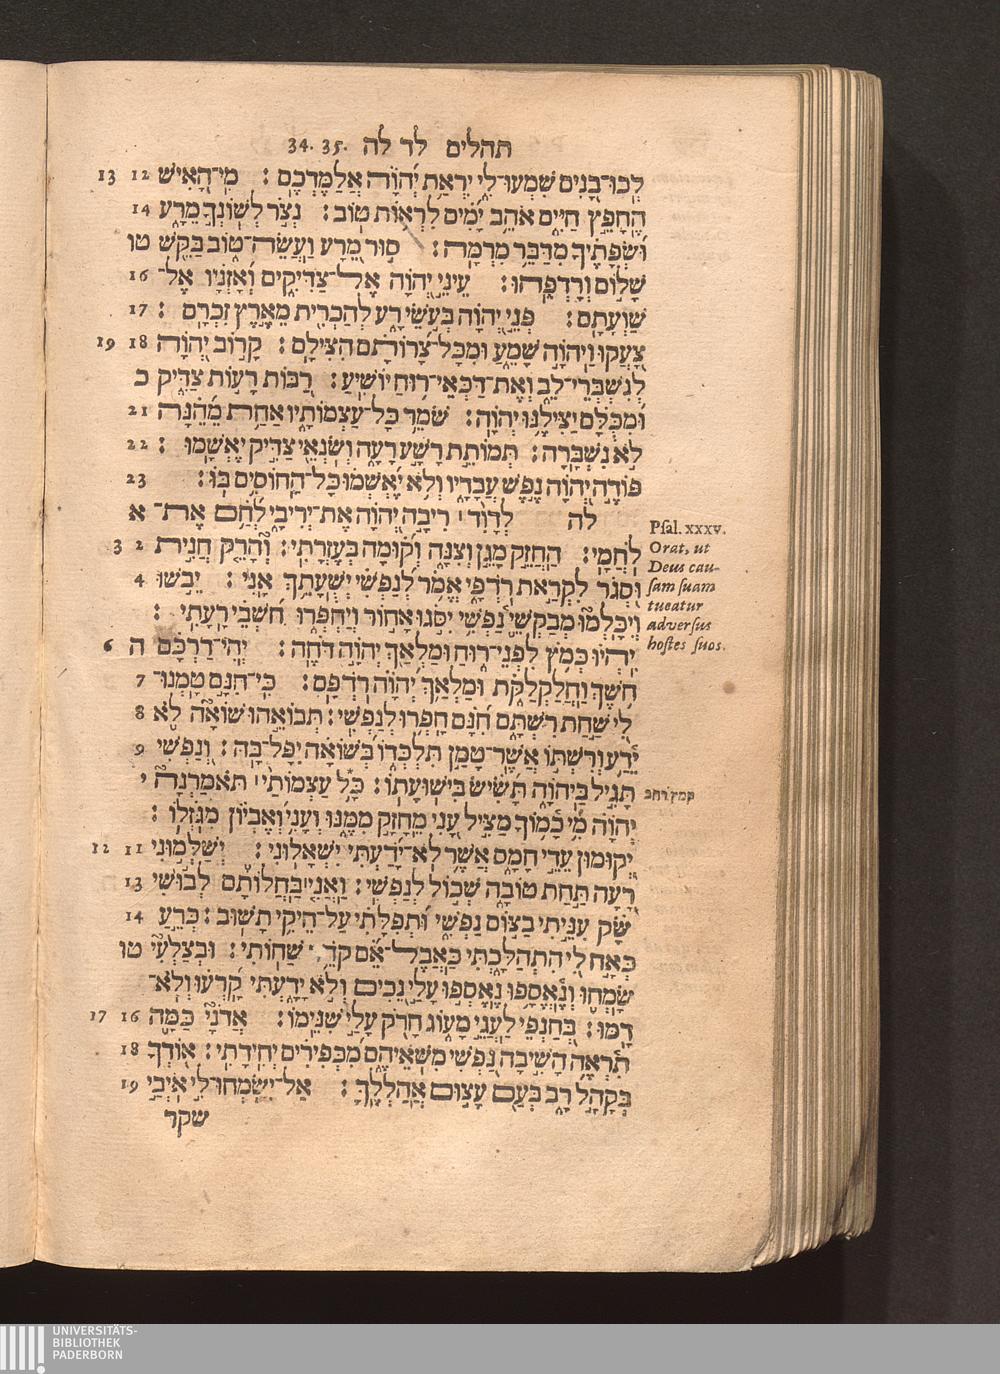 תהלים לד לה 34. 35.
לְכוּ־בָנִים שִׁמְעוּ־לִי יִרְאַת יְהוָה אֲלַמֶּדְכֶם׃ מִי־הָאִישׁ 12 13
הֶחָפֵץ חַיִּים אֹהֵב יָמִים לִרְאוֹת טוֹב׃ נְצֹר לְשׁוֹנְךָ מֵרָע 14
וּשְׂפָתֶיךָ מִדַּבֵּר מִרְמָה׃ סוּר מֵרָע וַעֲשֵׂה־טוֹב בַּקֵּשׁ טו
שָׁלוֹם וְרָדְפֵהוּ׃ עֵינֵי יְהוָה אֶל־צַדִּיקִים וְאָזְנָיו אֶל־ 16
שַׁוְעָתָם׃ פְּנֵי יְהוָה בְּעֹשֵׂי רָע לְהַכְרִית מֵאֶרֶץ זִכְרָם׃ 17
צָעֲקוּ וַיהוָה שָׁמֵעַ וּמִכָּל־צָרוֹתָם הִצִּילָם׃ קָרוֹב יְהוָה 18 19
לְנִשְׁבְּרֵי־לֵב וְאֶת־דַּכְּאֵי־רוּחַ יוֹשִׁיעַ׃ רַבּוֹת רָעוֹת צַדִּיק כ
וּמִכֻּלָּם יַצִּילֶנּוּ יְהוָה׃ שֹׁמֵר כָּל־עַצְמוֹתָיו אַחַת מֵהֵנָּה 21
לֹא נִשְׁבָּרָה׃ תְּמוֹתֵת רָשָׁע רָעָה וְשֹׂנְאֵי צַדִּיק יֶאְשָׁמוּ׃ 22
פּוֹדֶה יְהוָה נֶפֶשׁ עֲבָדָיו וְלֹא יֶאְשְׁמוּ כָּל־הַחוֹסִים בּוֹ׃ 23
לה לְדָוִד׀ רִיבָה יְהוָה אֶת־יְרִיבַי לְחַם אֶת־ א
לֹחֲמָי׃ הַחֲזֵק מָגֵן וְצִנָּה וְקוּמָה בְּעֶזְרָתִי׃ וְהָרֵק חֲנִית 2 3
וּסְגֹר לִקְרַאת רֹדְפָי אֱמֹר לְנַפְשִׁי יְשֻׁעָתֵךְ אָנִי׃ יֵבֹשׁוּ 4
וְיִכָּלְמוּ מְבַקְשֵׁי נַפְשִׁי יִסֹּגוּ אָחוֹר וְיַחְפְּרוּ חֹשְׁבֵי רָעָתִי׃
יִהְיוּ כְּמֹץ לִפְנֵי־רוּחַ וּמַלְאַךְ יְהוָה דֹּחֶה׃ יְהִי־דַרְכָּם ה 6
חֹשֶׁךְ וַחֲלַקְלַקֹּת וּמַלְאַךְ יְהוָה רֹדְפָם׃ כִּי־חִנָּם טָמְנוּ־ 7
לִי שַׁחַת רִשְׁתָּם חִנָּם חָפְרוּ לְנַפְשִׁי׃ תְּבוֹאֵהוּ שׁוֹאָה לֹא 8
יֵדָע וְרִשְׁתּוֹ אֲשֶׁר־טָמַן תִּלְכְּדוֹ בְּשׁוֹאָה יִפָּל־בָּהּ׃ וְנַפְשִׁי 9
תָּגִיל בַּיהוָה תָּשִׂישׂ בִּישׁוּעָתוֹ׃ כָּל עַצְמוֹתַי׀ תֹּאמַרְנָה י
יְהוָה מִי כָמוֹךָ מַצִּיל עָנִי מֵחָזָק מִמֶּנּוּ וְעָנִי וְאֶבְיוֹן מִגֹּזְלוֹ׃
יְקוּמוּן עֵדֵי חָמָס אֲשֶׁר לֹא־יָדַעְתִּי יִשְׁאָלוּנִי׃ יְשַׁלְּמוּנִי 11 12
רָעָה תַּחַת טוֹבָה שְׁכוֹל לְנַפְשִׁי׃ וַאֲנִי בַּחֲלוֹתָם לְבוּשִׁי 13
שָׂק עִנֵּיתִי בַצּוֹם נַפְשִׁי וּתְפִלָּתִי עַל־חֵיקִי תָשׁוּב׃ כְּרֵעַ 14
כְּאָח לִי הִתְהַלָּכְתִּי כַּאֲבֶל־אֵם קֹדֵר שַׁחוֹתִי׃ וּבְצַלְעִי טו
שָׂמְחוּ וְנֶאֱסָפוּ נֶאֶסְפוּ עָלַי נֵכִים וְלֹא יָדָעְתִּי קָרְעוּ וְלֹא־
דָמּוּ׃ בְּחַנְפֵי לַעֲגֵי מָעוֹג חָרֹק עָלַי שִׁנֵּימוֹ׃ אֲדֹנָי כַּמָּה 16 17
תִּרְאֶה הָשִׁיבָה נַפְשִׁי מִשֹּׁאֵיהֶם מִכְּפִירִים יְחִידָתִי׃ אוֹדְךָ 18
בְּקָהָל רָב בְּעַם עָצוּם אֲהַלְלֶךָּ׃ אַל־יִשְׂמְחוּ־לִי אֹיְבַי 19
שקר
Psal. xxxv.
Orat, ut
Deus cau-
sam suam
tueatur
adversus
hostes suos.
קמץ רחב
UNIVERSITÄTS-
BIBLIOTHEK
PADERBORN